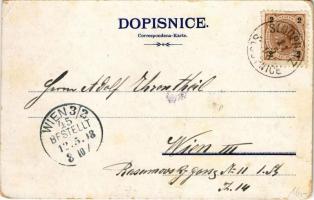 DOPISNICE.
Correspondenz-Karte.
2 2
Herrn Adolf Ehrenthal
WIEN 3/2
45
BESTELLT
12.5.98
Wien III
Rasumovskygasse Nº 11 1. St
T. 14